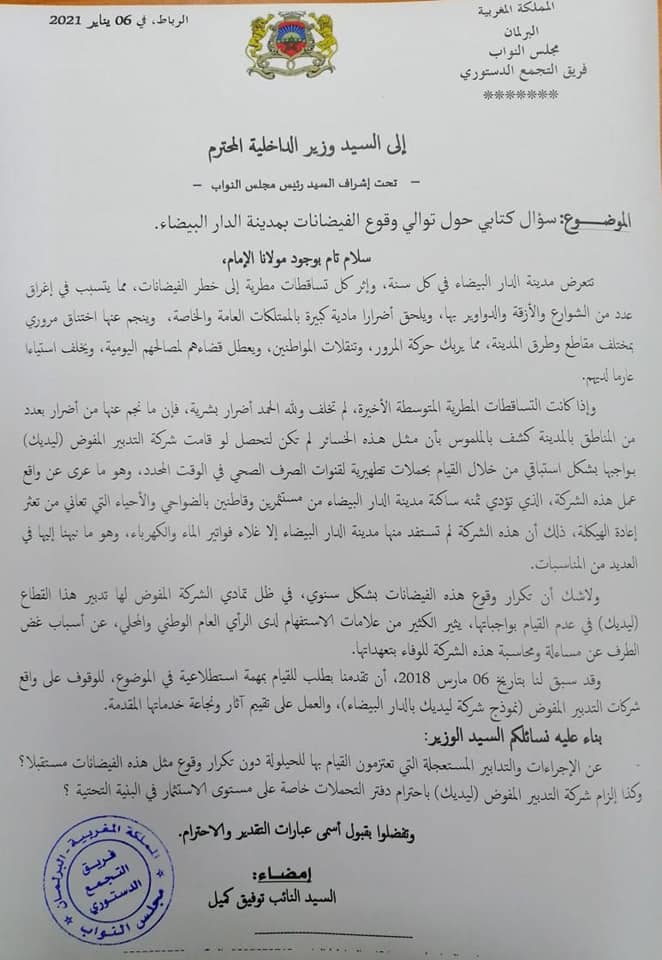 المملكة المغربية
البرلمان
مجلس النواب
فريق التجمع الدستوري
*******
الرباط، في 06 يناير 2021
إلى السيد وزير الداخلية المحترم
– تحت إشراف السيد رئيس مجلس النواب –
الموضـــوع: سؤال كتابي حول توالي وقوع الفيضانات بمدينة الدار البيضاء.
سلام تام بوجود مولانا الإمام،
تتعرض مدينة الدار البيضاء في كل سنة، وإثر كل تساقطات مطرية إلى خطر الفيضانات، مما يتسبب في إغراق
عدد من الشوارع والأزقة والدواوير بها، ويلحق أضرارا مادية كبيرة بالممتلكات العامة والخاصة، وينجم عنها اختناق مروري
بمختلف مقاطع وطرق المدينة، مما يربك حركة المرور، وتنقلات المواطنين، ويعطل قضاءهم لمصالحهم اليومية، ويخلف استياءا
عارما لديهم.
وإذا كانت التساقطات المطرية المتوسطة الأخيرة، لم تخلف ولله الحمد أضرار بشرية، فإن ما نجم عنها من أضرار بعدد
من المناطق بالمدينة كشف بالملموس بأن مثل هذه الخسائر لم تكن لتحصل لو قامت شركة التدبير المفوض (ليديك)
بواجبها بشكل استباقي من خلال القيام بحملات تطهيرية لقنوات الصرف الصحي في الوقت المحدد، وهو ما عرى عن واقع
عمل هذه الشركة، الذي تؤدي ثمنه ساكنة مدينة الدار البيضاء من مستثمرين وقاطنين بالضواحي والأحياء التي تعاني من تعثر
إعادة الهيكلة، ذلك أن هذه الشركة لم تستفد منها مدينة الدار البيضاء إلا غلاء فواتير الماء والكهرباء، وهو ما نبهنا إليها في
العديد من المناسبات.
ولاشك أن تكرار وقوع هذه الفيضانات بشكل سنوي، في ظل تمادي الشركة المفوض لها تدبير هذا القطاع
(ليديك) في عدم القيام بواجباتها، يثير الكثير من علامات الاستفهام لدى الرأي العام الوطني والمحلي، عن أسباب غض
الطرف عن مساءلة ومحاسبة هذه الشركة للوفاء بتعهداتها.
وقد سبق لنا بتاريخ 06 مارس 2018، أن تقدمنا بطلب للقيام بمهمة استطلاعية في الموضوع، للوقوف على واقع
شركات التدبير المفوض (نموذج شركة ليديك بالدار البيضاء)، والعمل على تقييم آثار ونجاعة خدماتها المقدمة.
بناء عليه نسائلكم السيد الوزير:
- عن الإجراءات والتدابير المستعجلة التي تعتزمون القيام بها للحيلولة دون تكرار وقوع مثل هذه الفيضانات مستقبلا؟
وكذا إلزام شركة التدبير المفوض (ليديك) باحترام دفتر التحملات خاصة على مستوى الاستثمار في البنية التحتية ؟
وتفضلوا بقبول أسمى عبارات التقدير والاحترام.
إمضاء:
السيد النائب توفيق كميل
المملكة المغربية - البرلمان
فريق
التجمع
الدستوري
مجلس النواب